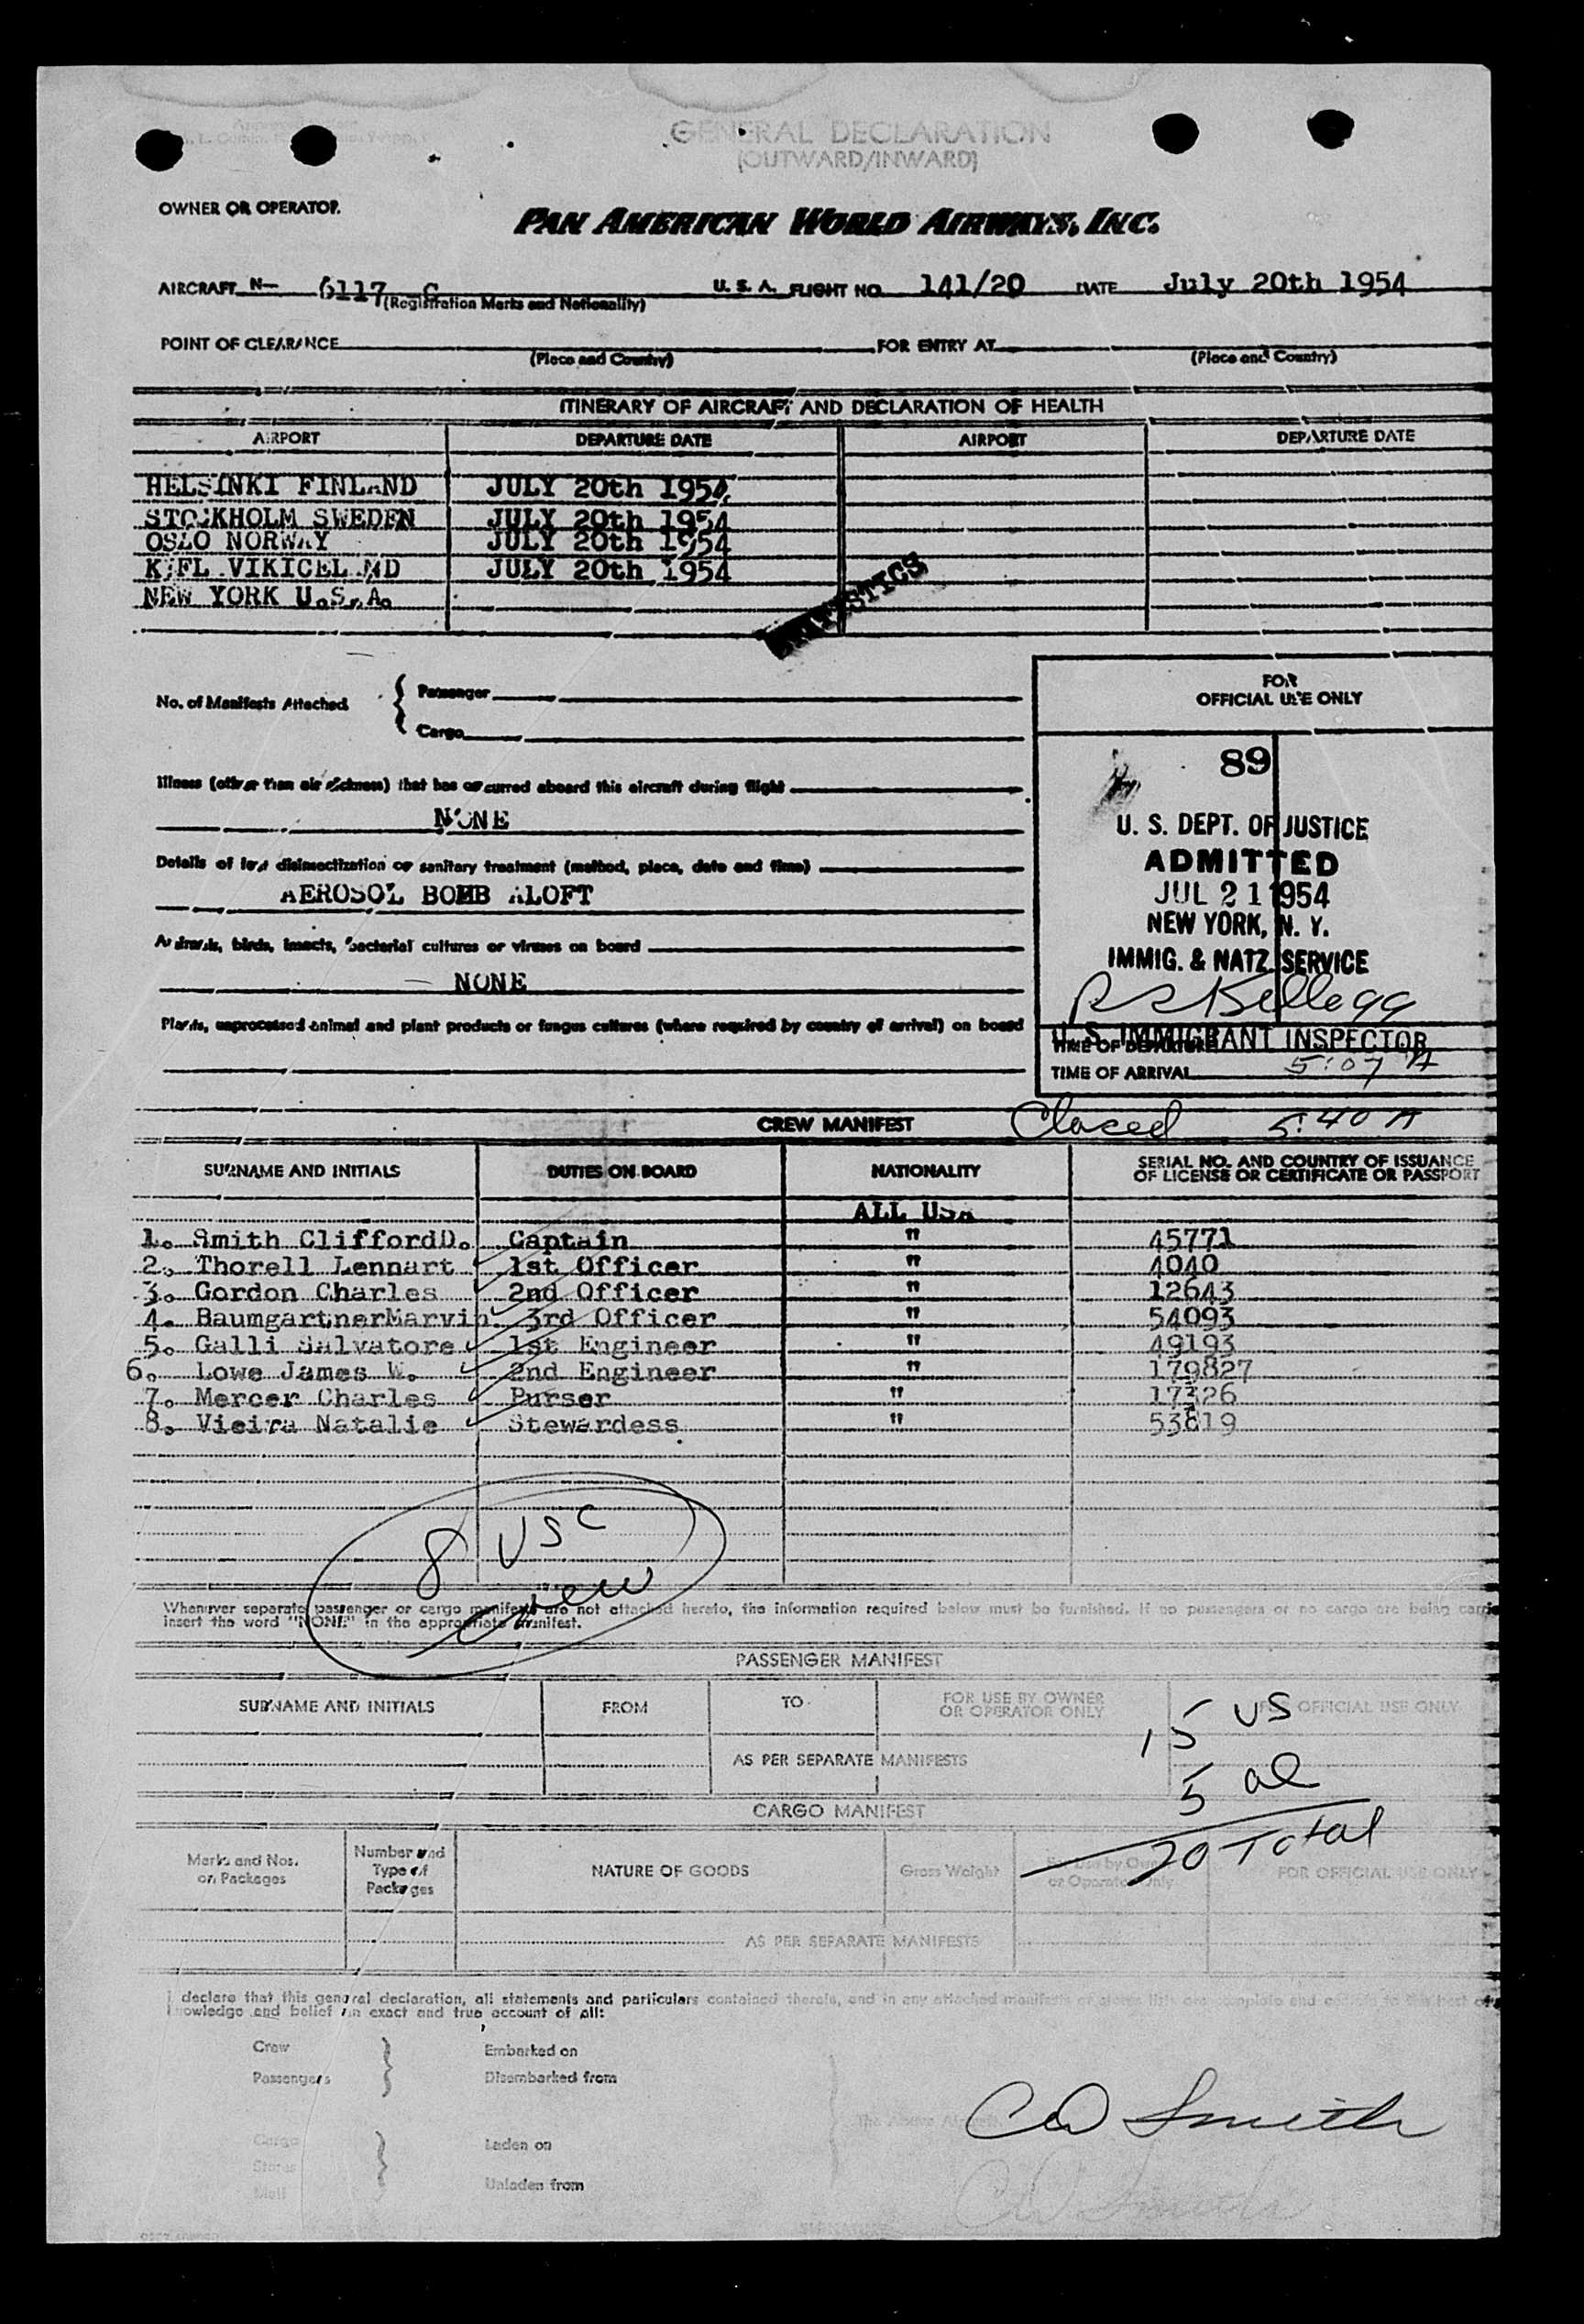 GENERAL DECLARATION
(OUTWARD/INWARD)
OWNER OR OPERATOR
PAN AMERICAN WORLD AIRWAYS, INC.
AIRCRAFT N- 6117 C U. S. A. FLIGHT NO. 141/20 DATE July 20th 1954
(Registration Marks and Nationality)
POINT OF CLEARANCE FOR ENTRY AT
(Place and Country) (Place and Country)
ITINERARY OF AIRCRAFT AND DECLARATION OF HEALTH
AIRPORT DEPARTURE DATE AIRPORT DEPARTURE DATE
HELSINKI FINLAND JULY 20th 1954
STOCKHOLM SWEDEN JULY 20th 1954
OSLO NORWAY JULY 20th 1954
KEFLAVIKICELAND JULY 20th 1954
NEW YORK U.S.A.
STATISTICS
No. of Manifests Attached { Passenger
Cargo
FOR
OFFICIAL USE ONLY
89
Illness (other than air sickness) that has occurred aboard this aircraft during flight
NONE
Details of last disinsectization or sanitary treatment (method, place, date and time)
AEROSOL BOMB ALOFT
Animals, birds, insects, bacterial cultures or viruses on board
NONE
Plants, unprocessed animal and plant products or fungus cultures (where required by country of arrival) on board
U. S. DEPT. OF JUSTICE
ADMITTED
JUL 21 1954
NEW YORK, N. Y.
IMMIG. & NATZ. SERVICE
R S Kellegg
U. S. IMMIGRANT INSPECTOR
TIME OF DEPARTURE
TIME OF ARRIVAL 5:07 A
CREW MANIFEST Closed 5:40 A
SURNAME AND INITIALS DUTIES ON BOARD NATIONALITY SERIAL NO. AND COUNTRY OF ISSUANCE
OF LICENSE OR CERTIFICATE OR PASSPORT
ALL USA
1. Smith CliffordD. Captain " 45771
2. Thorell Lennart 1st Officer " 4040
3. Gordon Charles 2nd Officer " 12643
4. BaumgartnerMarvin 3rd Officer " 54093
5. Galli Salvatore 1st Engineer " 49193
6. Lowe James W. 2nd Engineer " 179827
7. Mercer Charles Purser " 17326
8. Vieira Natalie Stewardess " 53819
8 USC
crew
Whenever separate passenger or cargo manifests are not attached hereto, the information required below must be furnished. If no passengers or no cargo are being carrie
insert the word "NONE" in the appropriate manifest.
PASSENGER MANIFEST
SURNAME AND INITIALS FROM TO FOR USE BY OWNER
OR OPERATOR ONLY FOR OFFICIAL USE ONLY
15 US
AS PER SEPARATE MANIFESTS
5 al
CARGO MANIFEST
20 Total
Marks and Nos.
on Packages Number and
Type of
Packages NATURE OF GOODS Gross Weight For Use by Owner
or Operator Only FOR OFFICIAL USE ONLY
AS PER SEPARATE MANIFESTS
I declare that this general declaration, all statements and particulars contained therein, and in any attached manifests
knowledge and belief an exact and true account of all:
Crew Embarked on
Passengers Disembarked from
The Above Aircraft
Cargo Laden on
Stores
Mail Unladen from
CD Smith
CD Smith